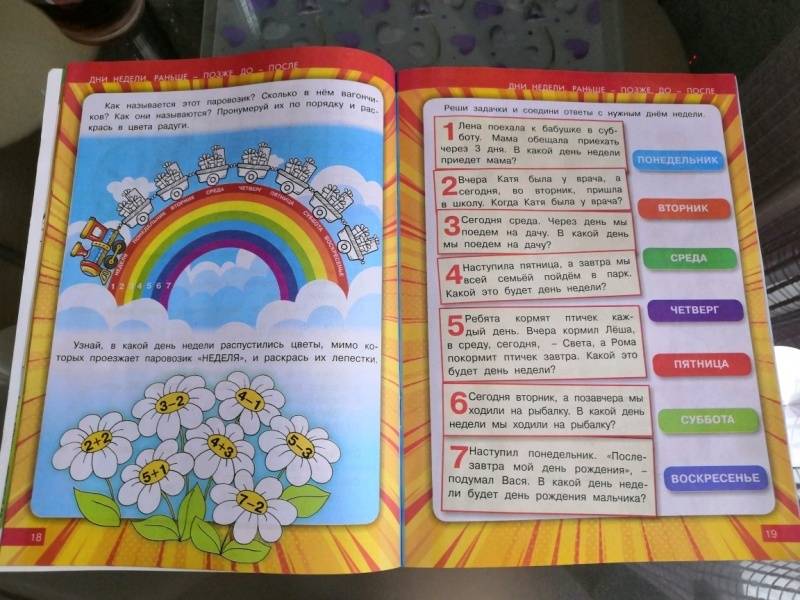 ДНИ НЕДЕЛИ. РАНЬШЕ – ПОЗЖЕ, ДО – ПОСЛЕ
Как называется этот паровозик? Сколько в нём вагончи-
ков? Как они называются? Пронумеруй их по порядку и рас-
крась в цвета радуги.
НЕДЕЛЯ ПОНЕДЕЛЬНИК ВТОРНИК СРЕДА ЧЕТВЕРГ ПЯТНИЦА СУББОТА ВОСКРЕСЕНЬЕ
1 2 3 4 5 6 7
Узнай, в какой день недели распустились цветы, мимо ко-
торых проезжает паровозик «НЕДЕЛЯ», и раскрась их лепестки.
3–2
4–1
2+2
4+3
5–3
5+1
7–2
18
ДНИ НЕДЕЛИ. РАНЬШЕ – ПОЗЖЕ, ДО – ПОСЛЕ
Реши задачки и соедини ответы с нужным днём недели.
1 Лена поехала к бабушке в суб-
боту. Мама обещала приехать
через 3 дня. В какой день недели
приедет мама?
2 Вчера Катя была у врача, а
сегодня, во вторник, пришла
в школу. Когда Катя была у врача?
3 Сегодня среда. Через день мы
поедем на дачу. В какой день
мы поедем на дачу?
4 Наступила пятница, а завтра мы
всей семьёй пойдём в парк.
Какой это будет день недели?
5 Ребята кормят птичек каж-
дый день. Вчера кормил Лёша,
в среду, сегодня, – Света, а Рома
покормит птичек завтра. Какой это
будет день недели?
6 Сегодня вторник, а позавчера мы
ходили на рыбалку. В какой день
недели мы ходили на рыбалку?
7 Наступил понедельник. «После-
завтра мой день рождения», –
подумал Вася. В какой день неде-
ли будет день рождения мальчика?
ПОНЕДЕЛЬНИК
ВТОРНИК
СРЕДА
ЧЕТВЕРГ
ПЯТНИЦА
СУББОТА
ВОСКРЕСЕНЬЕ
19